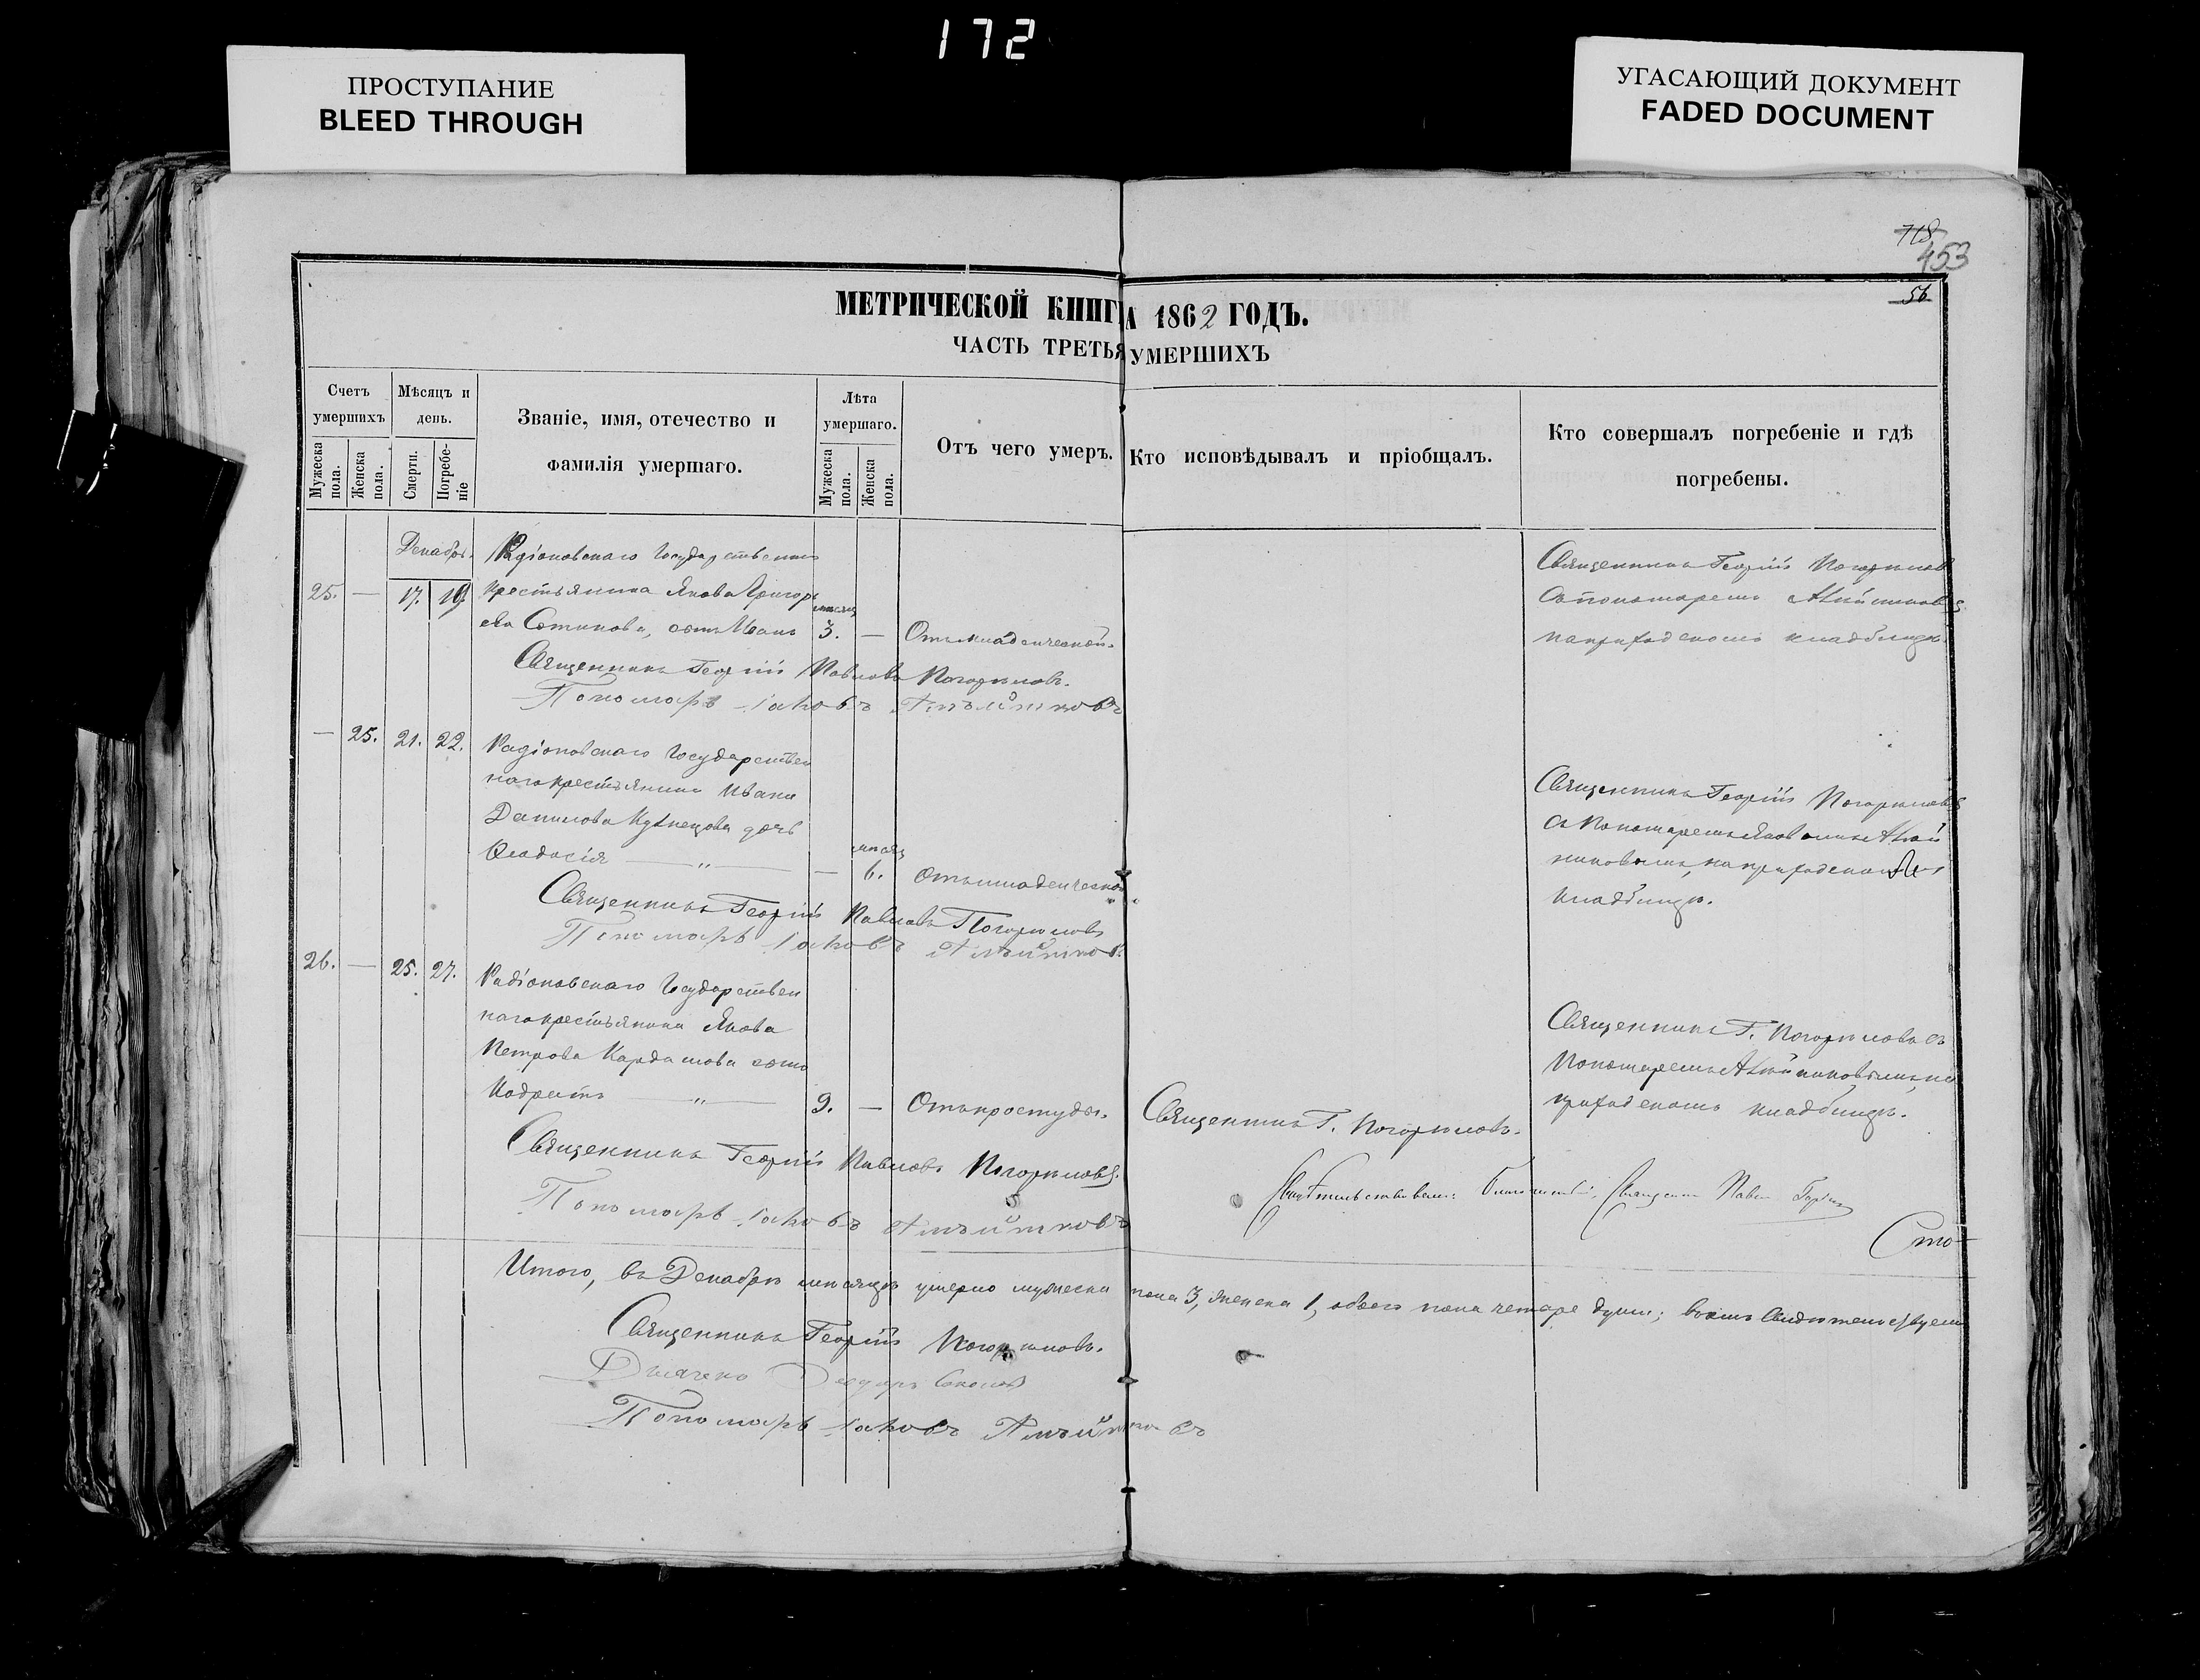 172
ПРОСТУПАНИЕ
BLEED THROUGH
УГАСАЮЩИЙ ДОКУМЕНТ
FADED DOCUMENT
718
453
56
МЕТРИЧЕСКОЙ КНИГ
А 1862 ГОДЪ.
ЧАСТЬ ТРЕТЬЯ
УМЕРШИХЪ
Счетъ умершихъ
Мужеска пола.
Женска пола.
Мѣсяцъ и день.
Смерти.
Погребе-
ніе
Званіе, имя, отечество и
фамилія умершаго.
Лѣта умершаго.
Мужеска пола.
Женска пола.
Отъ чего умеръ.
Кто исповѣдывалъ и пріобщалъ.
Кто совершалъ погребеніе и гдѣ
погребены.
Декабрь.
25. — 17. 19.
Радіоновскаго Государственнаго
крестьянина Якова Григорь
ева Сотникова, сынъ Иванъ
мѣсяц
3. — Отъ младенческой.
Священникъ Георгій Погорѣловъ
съ пономаремъ
на приходскомъ кладбищѣ
Священникъ Георгій Павловъ Погорѣловъ.
Пономарь Іаковъ
— 25. 21. 22.
Радіоновскаго Государствен
наго крестьянина Ивана
Данилова Кузнецова дочь
Ѳеодосія — „ —
мѣсяц
— 6. Отъ младенческой
Священникъ Георгій Погорѣловъ
съ Пономаремъ Яковомъ
на приходскомъ
кладбищѣ.
Священникъ Георгій Павловъ Погорѣловъ
Пономарь Іаковъ
26. — 25. 27.
Радіоновскаго Государствен
наго крестьянина Якова
Петрова Кардашова сынъ
Кодратъ — „ —
9. — Отъ простуды.
Священникъ Г. Погорѣловъ.
Священникъ Г. Погорѣловъ съ
Пономаремъ на
приходскомъ кладбищѣ.
Священникъ Георгій Павловъ Погорѣловъ.
Пономарь Іаковъ
Свидѣтельствовалъ: Благочинный, Священ Павел
Итого, въ Декабрѣ мѣсяцѣ умерло мужеска пола 3, женска 1, обоего пола четыре души; въ томъ свидѣтельствуемъ
Священникъ Георгій Погорѣловъ.
Пономарь Іаковъ